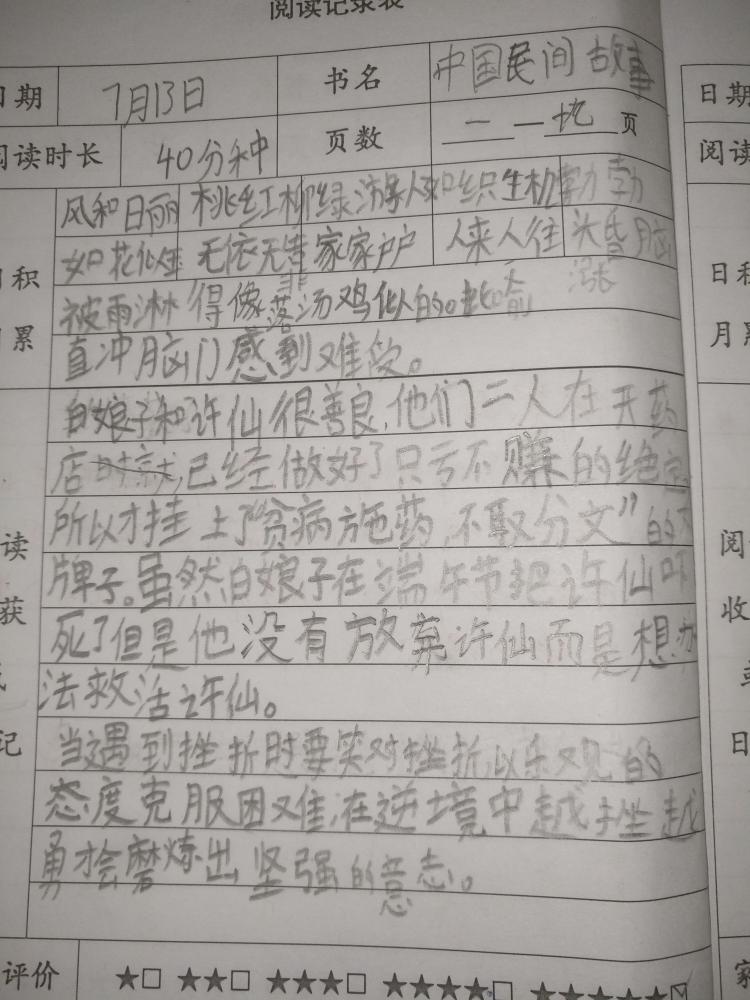 阅读记录表
日期 7月13日 书名 中国民间故事 日期
阅读时长 40分种 页数 一 — 九 页 阅读
风和日丽 桃红柳绿 游人如织 生机勃勃
如花似玉 无依无告 家家户户 人来人往 头昏脑涨
积 日积
被雨淋得像落汤鸡似的。
累 月累
直冲脑门感到难受。
白娘子和许仙很善良,他们二人在开药
店时就已经做好了只亏不赚的绝
所以才挂上了"贫病施药,不取分文"的
读 阅
牌子。虽然白娘子在端午节把许仙吓
获 收
死了但是他没有放弃许仙而是想办
法救活许仙。
记 日
当遇到挫折时要笑对挫折,以乐观的
态度克服困难,在逆境中越挫越
勇才会磨炼出坚强的意志。
评价 ★□ ★★□ ★★★□ ★★★★□ ★★★★★☑ 家